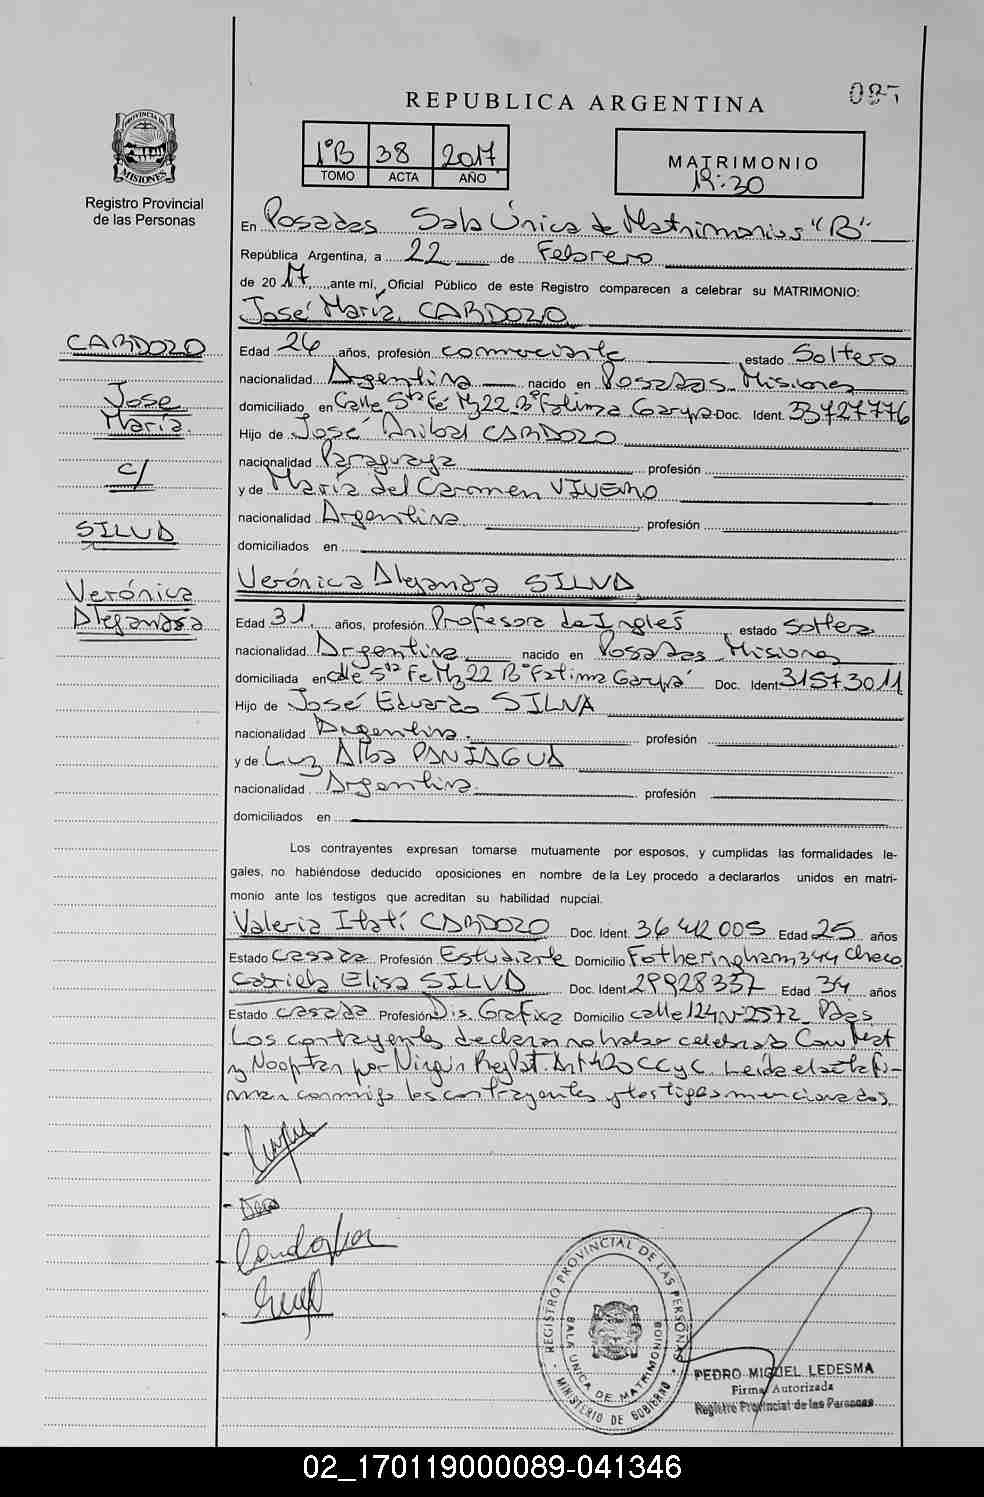 REPUBLICA ARGENTINA
PROVINCIA DE MISIONES
Registro Provincial
de las Personas
1°B 38 2017
TOMO ACTA AÑO
MATRIMONIO
19:30
En Posadas Sala Única de Matrimonios "B"
República Argentina, a 22 de Febrero
de 2017, ante mí, Oficial Público de este Registro comparecen a celebrar su MATRIMONIO:
José María CARDOZO
CARDOZO
José
María
c/
SILVA
Verónica
Alejandra
Edad 26 años, profesión comerciante estado Soltero
nacionalidad Argentina nacido en Posadas Misiones
domiciliado en Calle Sta Fé Mz 22 B° Fatima Garupa Doc. Ident. 33727776
Hijo de José Anibal CARDOZO
nacionalidad Paraguaya profesión
y de María del Carmen VIVERO
nacionalidad Argentina profesión
domiciliados en
Verónica Alejandra SILVA
Edad 31 años, profesión Profesora de Inglés estado soltera
nacionalidad Argentina nacido en Posadas Misiones
domiciliada en calle Sta Fe Mz 22 B° Fatima Garupá Doc. Ident. 31573011
Hijo de José Eduardo SILVA
nacionalidad Argentina profesión
y de Luz Alba PANIAGUA
nacionalidad Argentina profesión
domiciliados en
Los contrayentes expresan tomarse mutuamente por esposos, y cumplidas las formalidades le-
gales, no habiéndose deducido oposiciones en nombre de la Ley procedo a declararlos unidos en matri-
monio ante los testigos que acreditan su habilidad nupcial.
Valeria Itatí CARDOZO Doc. Ident. 36412005 Edad 25 años
Estado casada Profesión Estudiante Domicilio Fotheringham 344 Chaco
Gabriela Elisa SILVA Doc. Ident. 29928337 Edad 34 años
Estado casada Profesión Dis. Grafica Domicilio calle 124 N-2572 Pdas
Los contrayentes declaran no haber celebrado Conv Mat
y No optan por Ningún Reg Pat. Art 420 CC y C. Leida el acta fi-
man conmigo los contrayentes y testigos mencionados.
REGISTRO PROVINCIAL DE LAS PERSONAS
SALA UNICA DE MATRIMONIOS
MINISTERIO DE GOBIERNO
PEDRO MIGUEL LEDESMA
Firma Autorizada
Registro Provincial de las Personas
02_170119000089-041346